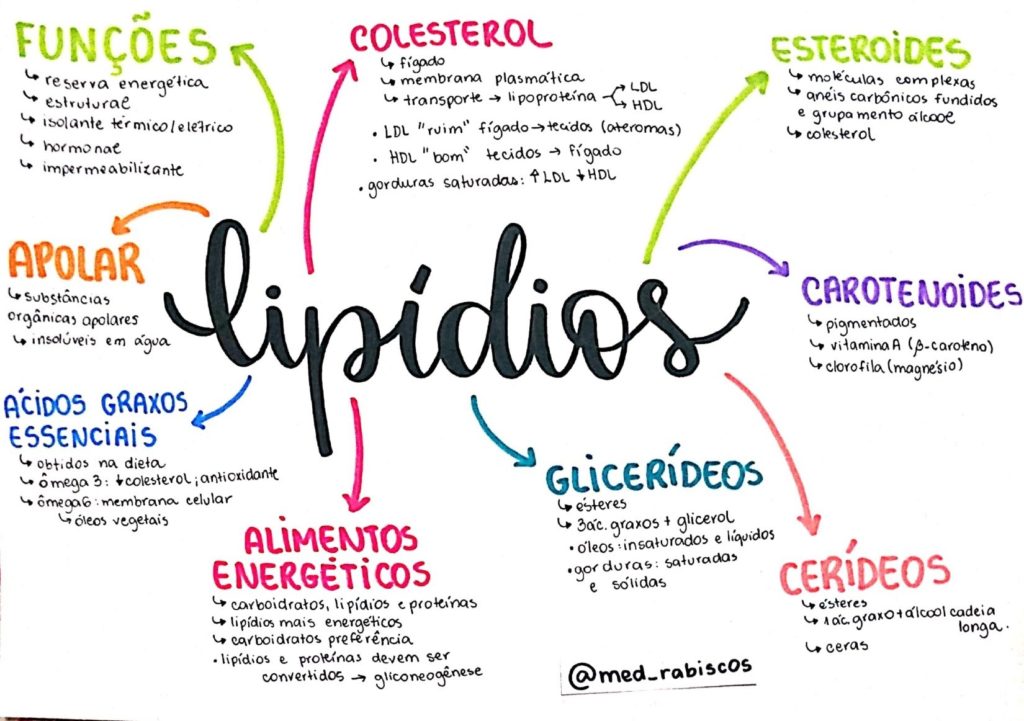 FUNÇÕES
↳ reserva energética
↳ estrutural
↳ isolante térmico/elétrico
↳ hormonal
↳ impermeabilizante
COLESTEROL
↳ fígado
↳ membrana plasmática
↳ transporte → lipoproteína → LDL
→ HDL
• LDL "ruim" fígado → tecidos (ateromas)
• HDL "bom" tecidos → fígado
• gorduras saturadas: ↑ LDL ↓ HDL
ESTEROIDES
↳ moléculas complexas
↳ anéis carbônicos fundidos
e grupamento álcool
↳ colesterol
APOLAR
↳ substâncias
orgânicas apolares
↳ insolúveis em água
lipídios
CAROTENOIDES
↳ pigmentados
↳ vitamina A (β-caroteno)
↳ clorofila (magnésio)
ÁCIDOS GRAXOS
ESSENCIAIS
↳ obtidos na dieta
↳ ômega 3: ↓ colesterol; antioxidante
↳ ômega 6: membrana celular
↳ óleos vegetais
ALIMENTOS
ENERGÉTICOS
↳ carboidratos, lipídios e proteínas
↳ lipídios mais energéticos
↳ carboidratos preferência
• lipídios e proteínas devem ser
convertidos → gliconeogênese
GLICERÍDEOS
↳ ésteres
↳ 3 ác. graxos + glicerol
• óleos: insaturados e líquidos
• gorduras: saturadas
e sólidas
CERÍDEOS
↳ ésteres
↳ 1 ác. graxo + álcool cadeia
longa.
↳ ceras
@med_rabiscos